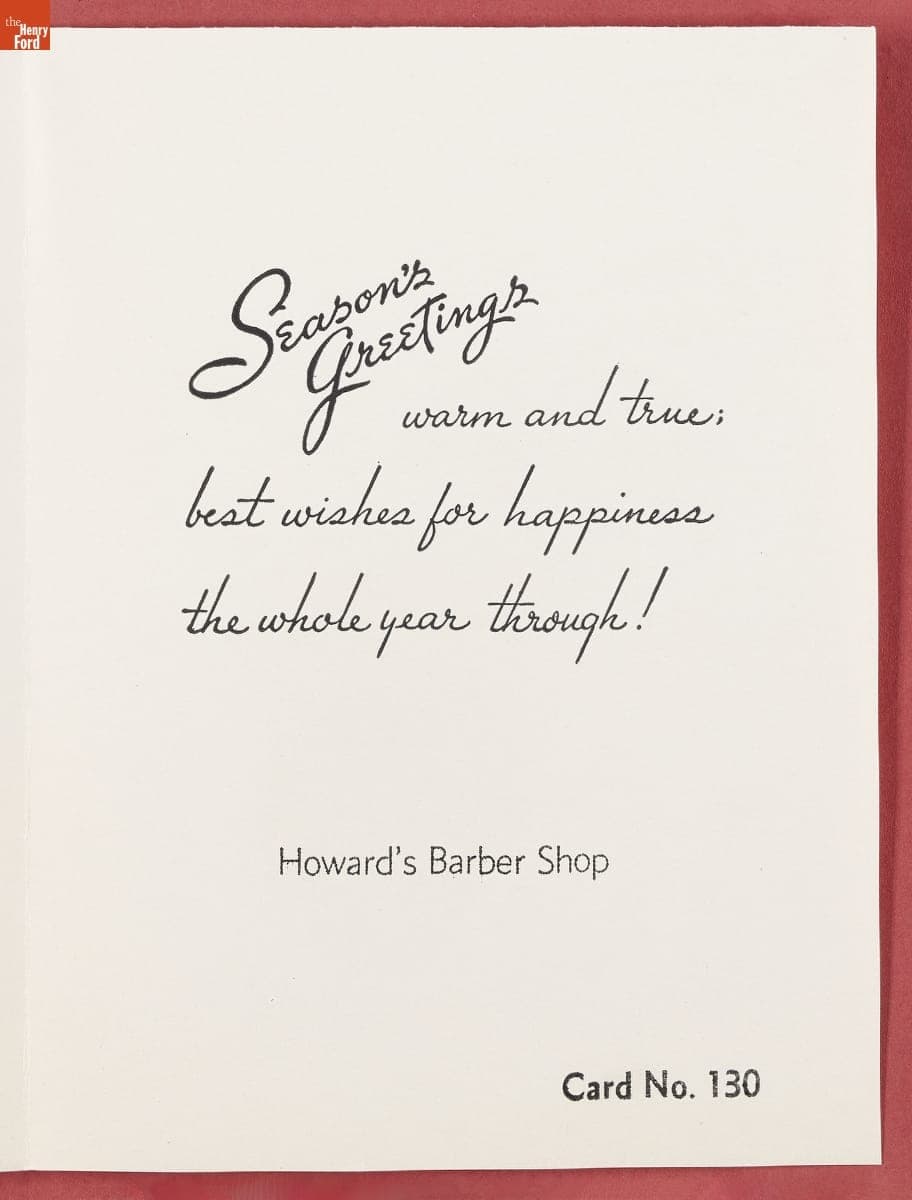 the
Henry
Ford
Season's
Greetings
warm and true;
best wishes for happiness
the whole year through!
Howard's Barber Shop
Card No. 130